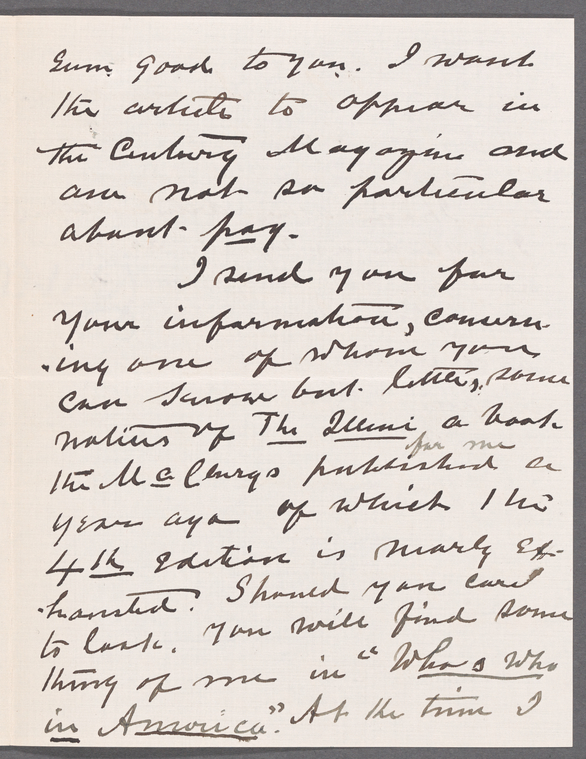 seem good to you. I want
the article to appear in
the Century Magazine and
am not so particular
about pay.
I send you for
your information, concern-
ing one of whom you
can know but little, some
notices of The Illini a book
the McClurgs published for me a
year ago of which the
4th edition is nearly ex-
hausted. Should you care
to look, you will find some
thing of me in "Who's Who
in America". At the time I